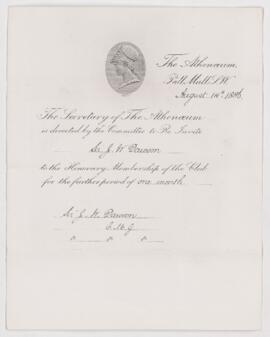 The Athenæum.
Pall Mall. S.W.
August 14th 1886.
The Secretary of The Athenæum
is directed by the Committee to Re Invite
Sir J. W. Dawson
to the Honorary Membership of the Club
for the further period of one month
Sir J. W. Dawson
C.M.G